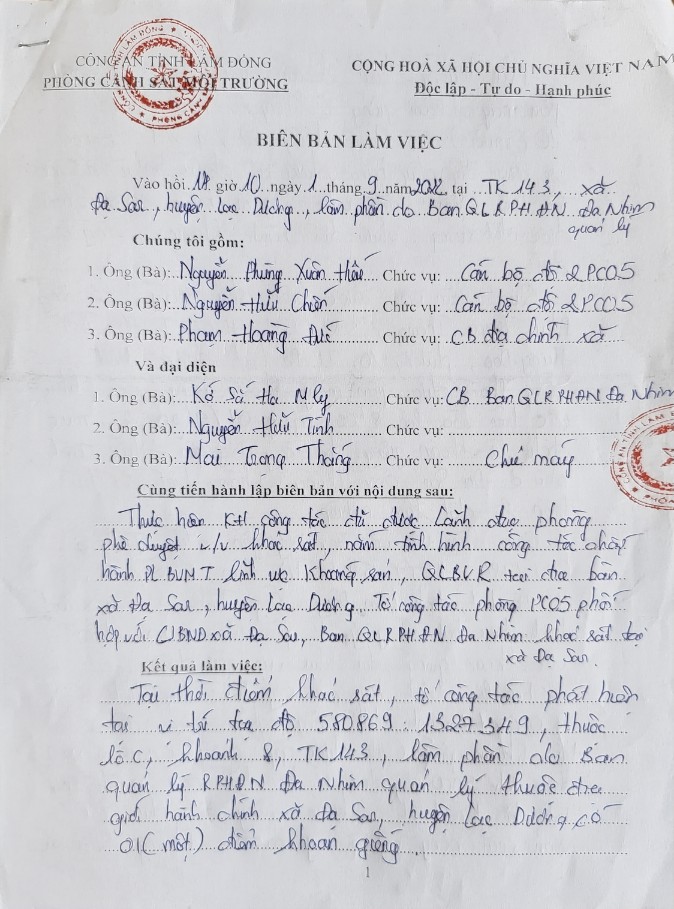 CÔNG AN TỈNH LÂM ĐỒNG
PHÒNG CẢNH SÁT MÔI TRƯỜNG
CỘNG HOÀ XÃ HỘI CHỦ NGHĨA VIỆT NAM
Độc lập - Tự do - Hạnh phúc
BIÊN BẢN LÀM VIỆC
Vào hồi 18 giờ 10 ngày 1 tháng 9 năm 2022 tại TK 143, xã
Đạ Sar, huyện Lạc Dương, lâm phần do Ban QLRPHĐN Đa Nhim
quản lý
Chúng tôi gồm:
1. Ông (Bà): Nguyễn Phùng Xuân Chức vụ: Cán bộ đội 2 PC05
2. Ông (Bà): Nguyễn Hữu Chiến Chức vụ: Cán bộ đội 2 PC05
3. Ông (Bà): Phạm Hoàng Chức vụ: CB địa chính xã
Và đại diện
1. Ông (Bà): Kơ Să Ha Mly Chức vụ: CB Ban QLRPHĐN Đa Nhim
2. Ông (Bà): Nguyễn Hữu Tình Chức vụ:
3. Ông (Bà): Mai Trọng Thắng Chức vụ: Chủ máy
Cùng tiến hành lập biên bản với nội dung sau:
Thực hiện KH công tác đã được Lãnh đạo phòng
phê duyệt v/v khảo sát, nắm tình hình công tác chấp
hành PL BVMT lĩnh vực Khoáng sản, QLBVR tại địa bàn
xã Đạ Sar, huyện Lạc Dương. Tổ công tác phòng PC05 phối
hợp với UBND xã Đạ Sar, Ban QLRPHĐN Đa Nhim khảo sát tại
xã Đạ Sar.
Kết quả làm việc:
Tại thời điểm khảo sát, tổ công tác phát hiện
tại vị trí tọa độ 580869: 1327349, thuộc
lô c, khoảnh 8, TK143, lâm phần do Ban
quản lý RPHĐN Đa Nhim quản lý thuộc địa
giới hành chính xã Đạ Sar, huyện Lạc Dương có
01 (một) điểm khoan giếng.
1